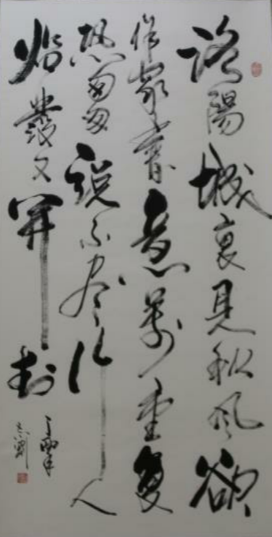 洛陽城裏見秋風欲
作家書意萬重復
恐匆匆說不尽行人
臨發又開封